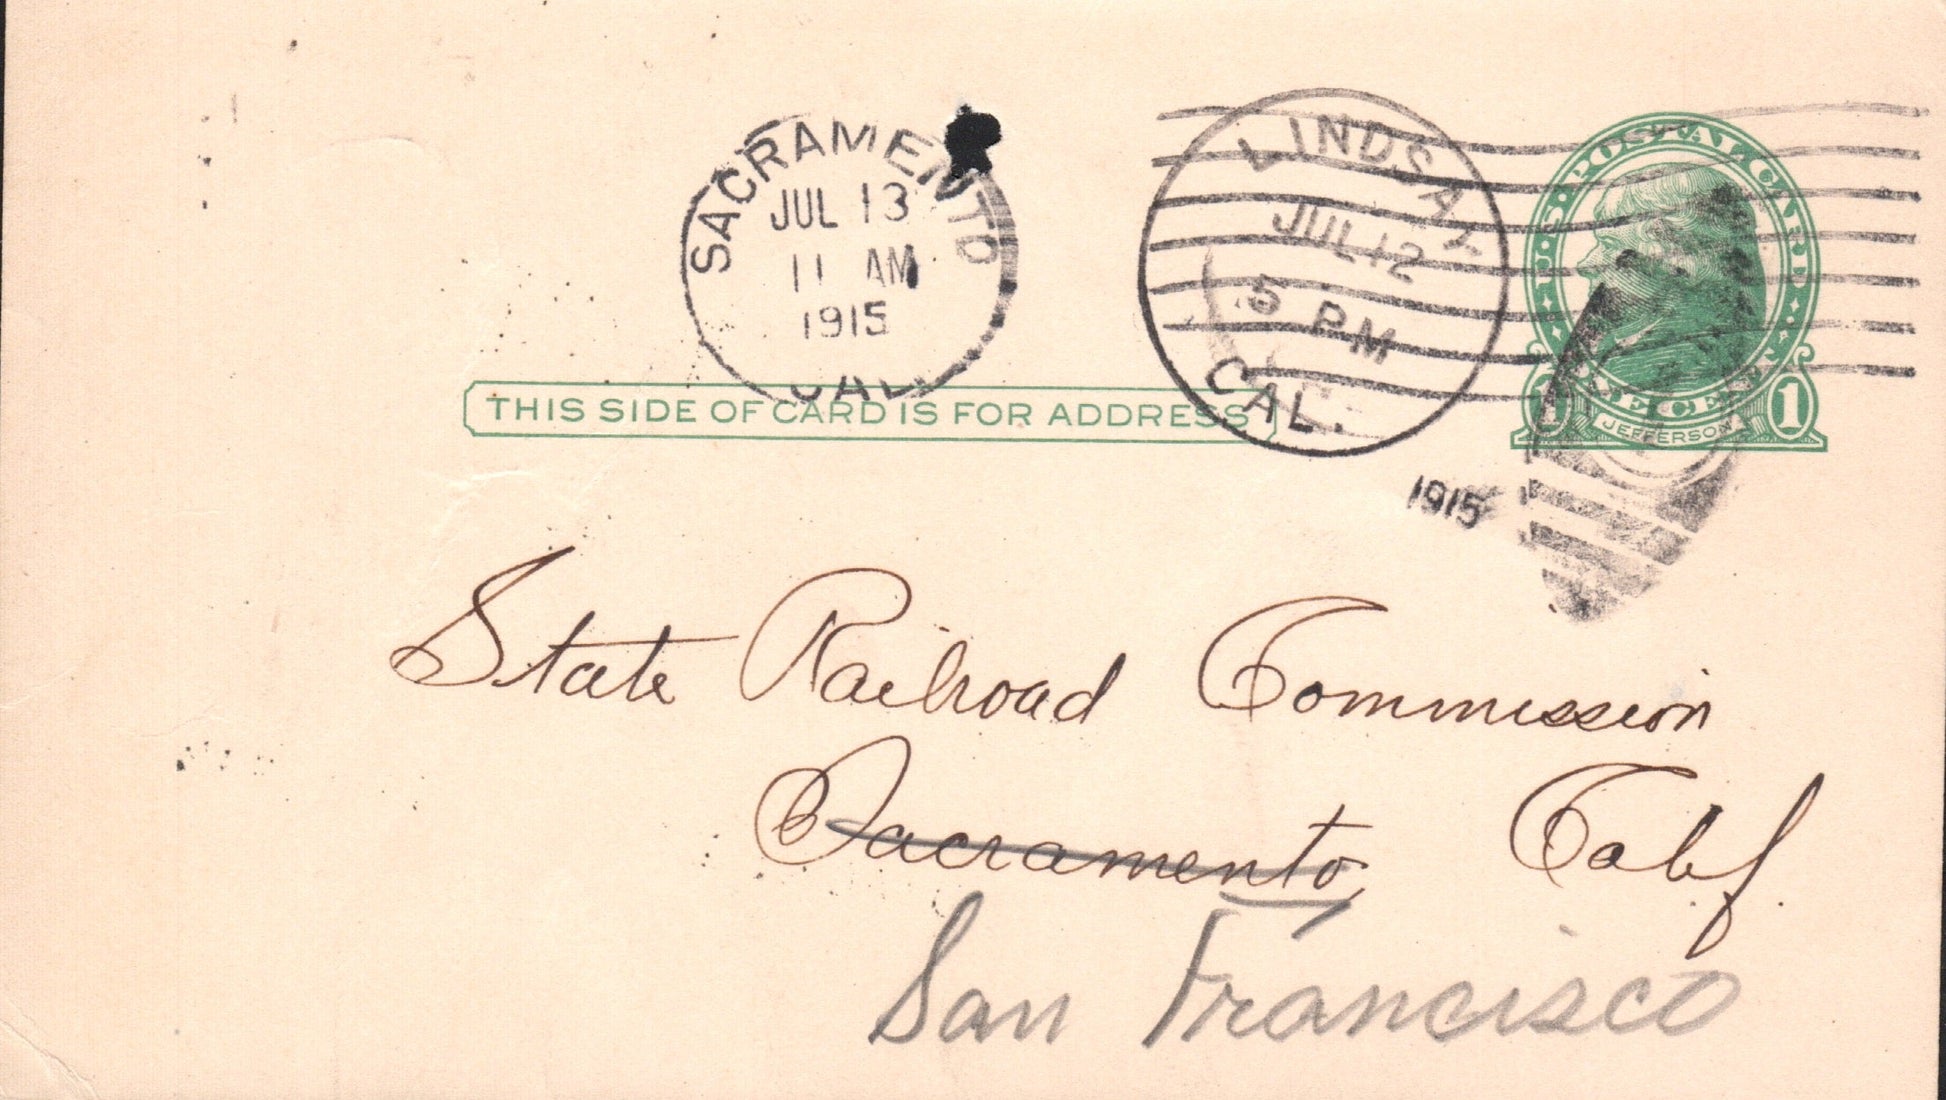 SACRAMENTO
JUL 13
11 AM
1915
CAL.
LINDSAY
JUL 12
5 PM
CAL.
1915
U.S. POSTAL CARD
ONE CENT
1 1
JEFFERSON
THIS SIDE OF CARD IS FOR ADDRESS
State Railroad Commission
Sacramento, Calif.
San Francisco